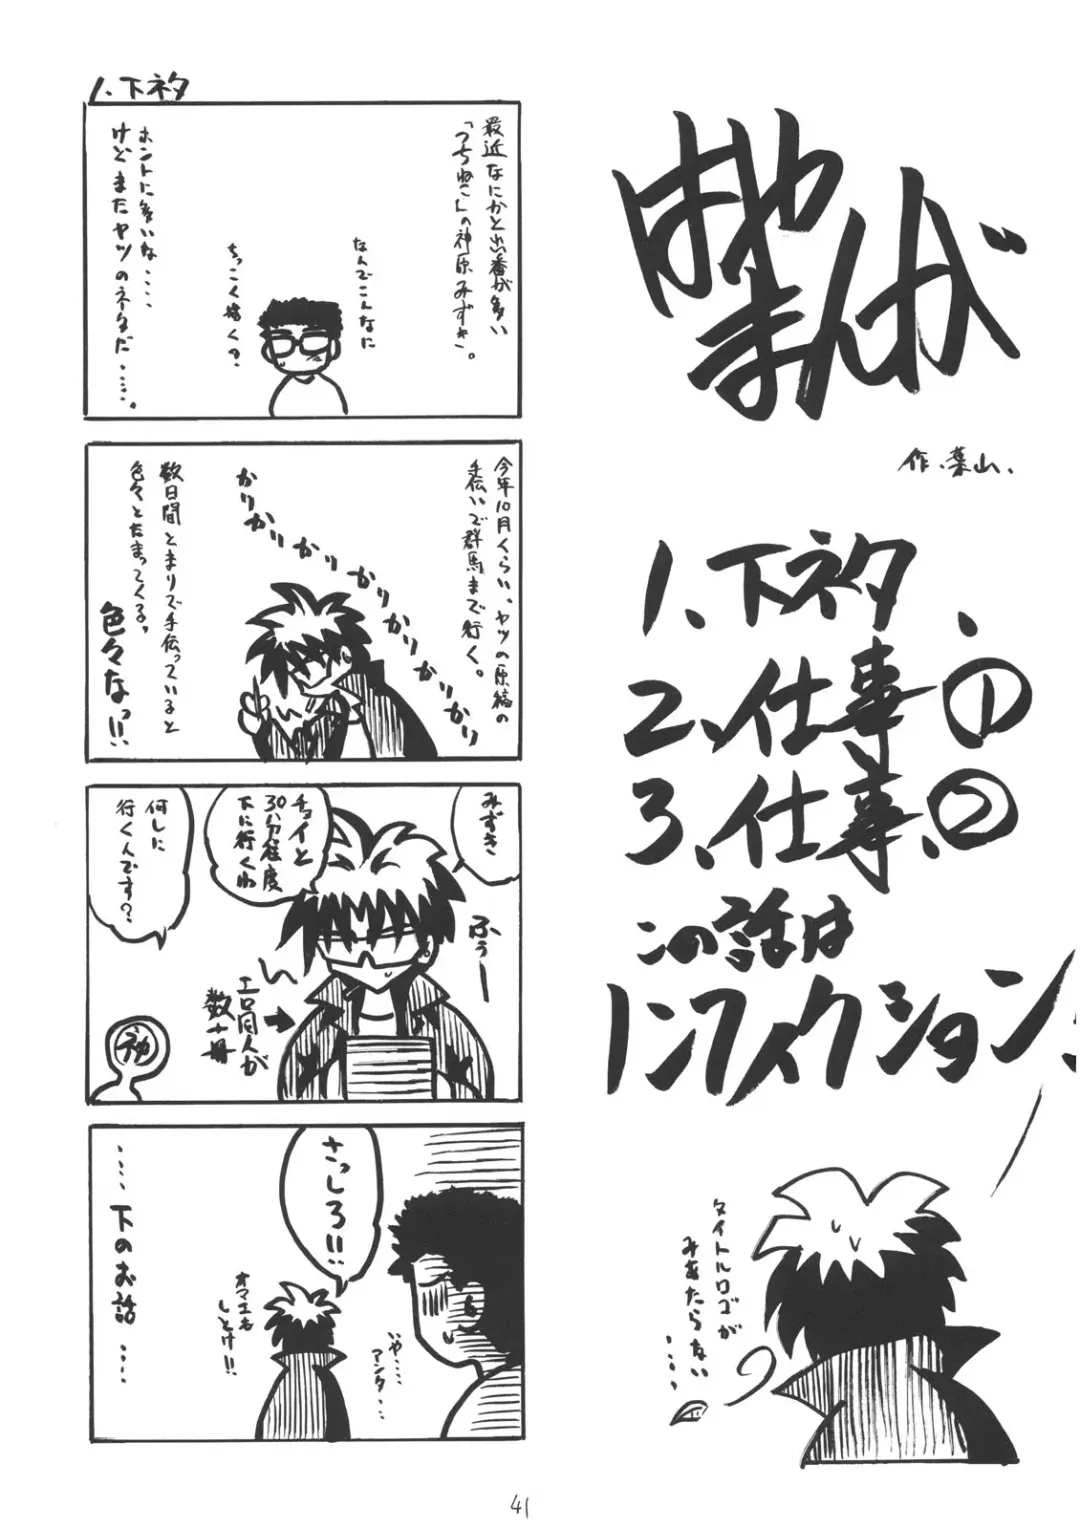 はやまんが
作・葉山.
1、下ネタ、
2、仕事①
3、仕事、②
この話は
ノンフィクション!
タイトルロゴが
みあたらない
‥‥‥
1、下ネタ
最近なにかと出番が多い
「つちねこさんの神原みずき」。
なんでこんなに
ちっこく描く?
ホントに多いな‥‥
けどまたヤツのネタだ‥‥。
今年10月くらい、ヤツの原稿の
手伝いで群馬まで行く。
かりかりかりかりかりかりかりかり
数日間とまりで手伝っていると
色々とたまってくる。
色々なっ!!
みずき
チョイと
30分程度
下に行くわ
ふぅー
エロ同人が
数十冊
何しに
行くんですか?
さっしろ!!
いや‥‥
アンタ‥‥
オマエも
しとけ!!
‥‥下のお話‥‥
41